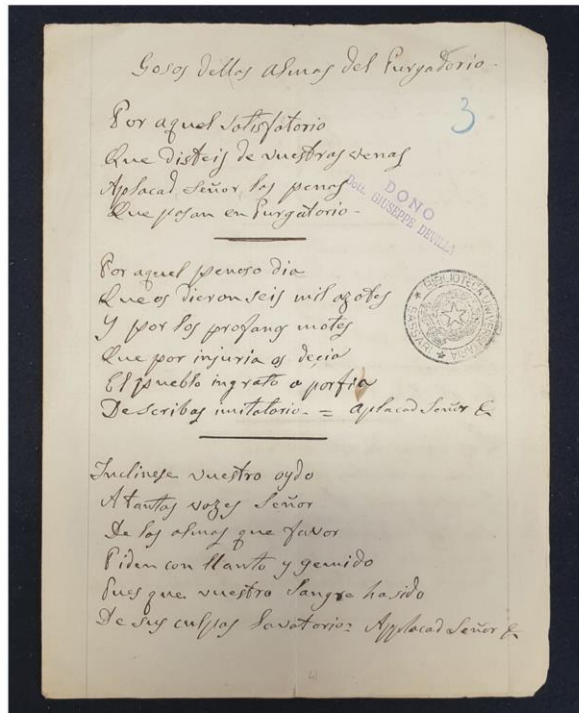 Gosos dellas almas del Purgatorio.
3
Por aquel satisfatorio
Que disteis de vuestras venas
Applacad Señor las penas
Que posan en Purgatorio.
DONO
Dott. GIUSEPPE DEVILLA
Por aquel penoso dia
Que os dieron seis mil azotes
Y por los profanos motes
Que por injuria os decia
El pueblo ingrato a porfia
De scribas imitatorio. = aplacad Señor &
BIBLIOTECA UNIVERSITARIA
SASSARI
Inclinese vuestro oydo
A tantas vozes Señor
De las almas que favor
Piden con llanto y gemido
Pues que vuestro Sangre ha sido
De sus culpas lavatorio = Applacad Señor &